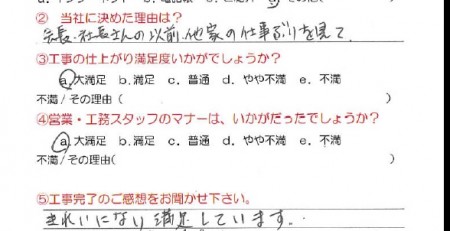 ② 当社に決めた理由は?
会長、社長さんの以前、他家の仕事ぶりを見て
③工事の仕上がり満足度いかがでしょうか?
a.大満足 b.満足 c.普通 d.やや不満 e.不満
不満/その理由(
④営業・工務スタッフのマナーは、いかがだったでしょうか?
a.大満足 b.満足 c.普通 d.やや不満 e.不満
不満/その理由(
⑤工事完了のご感想をお聞かせ下さい。
きれいになり満足しています.